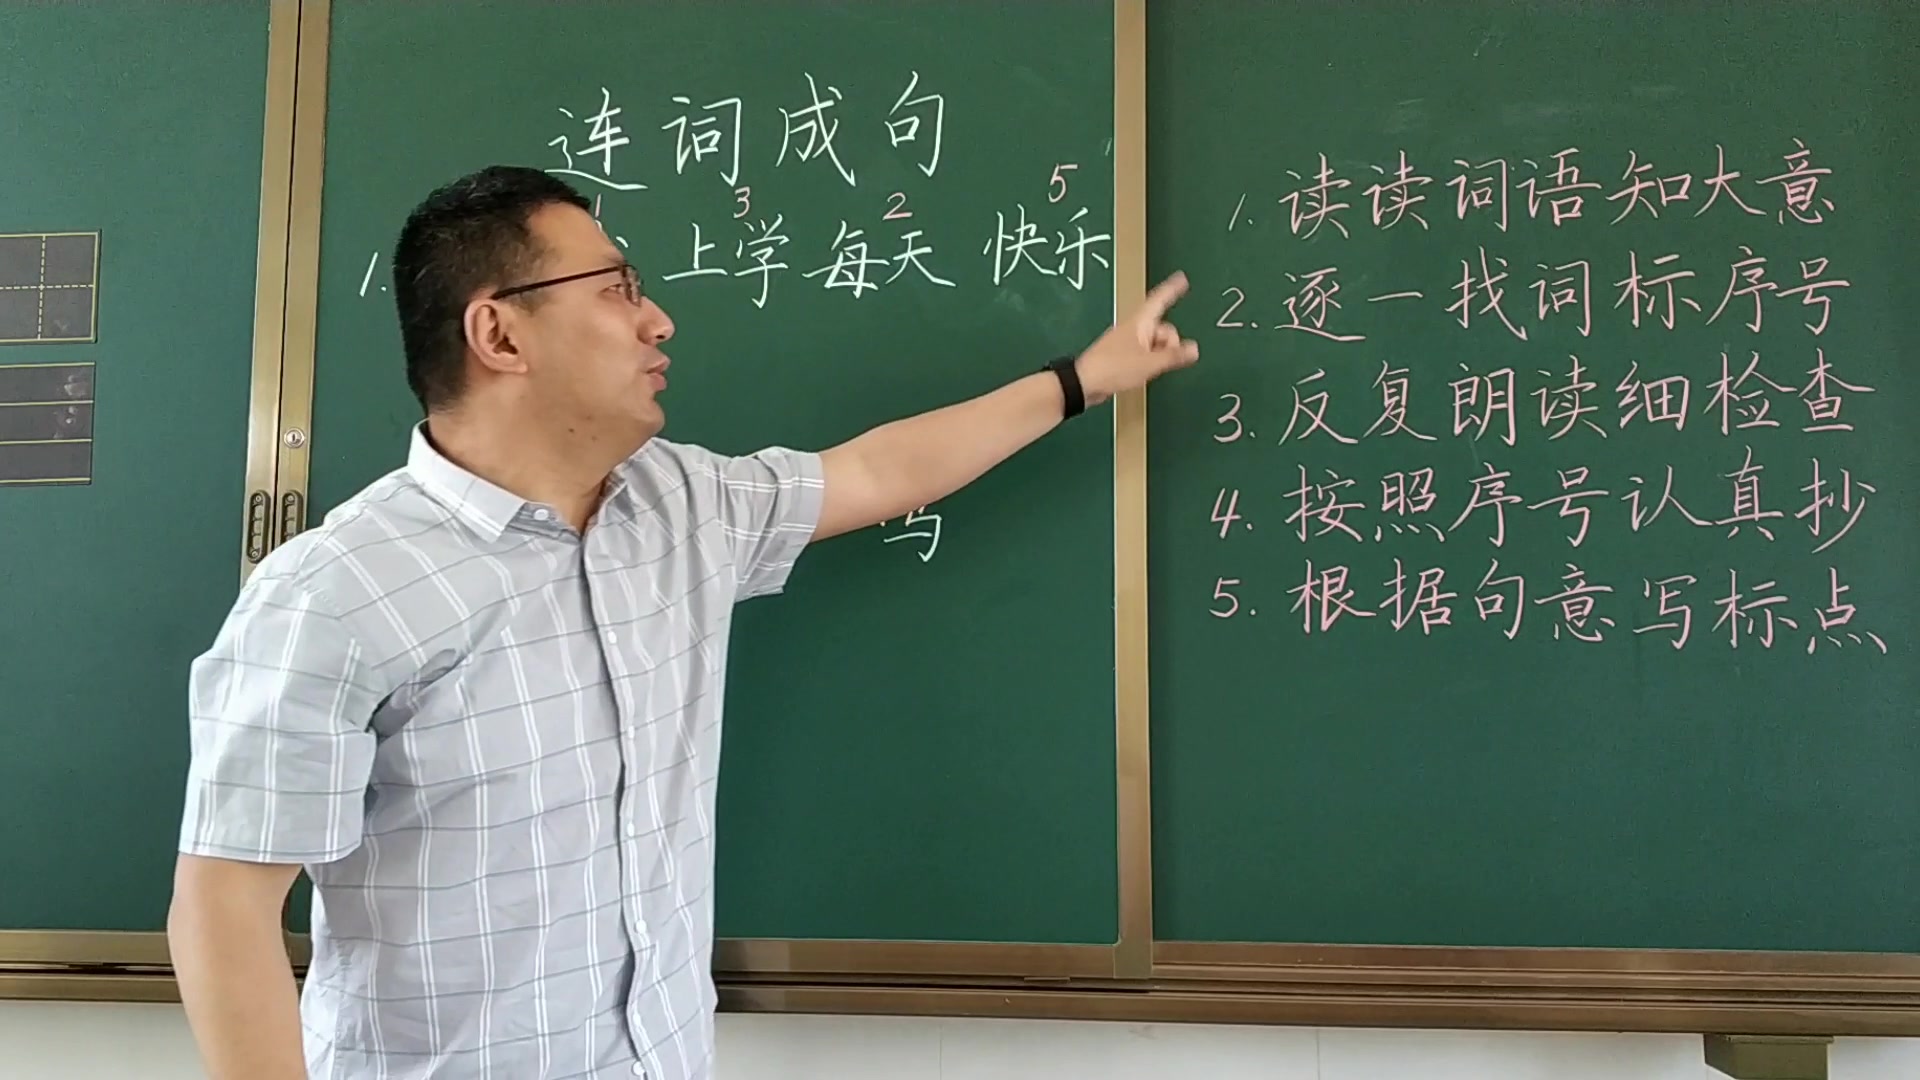 连词成句
1 3 2 5
1. 上学 每天 快乐
写
1. 读读词语知大意
2. 逐一找词标序号
3. 反复朗读细检查
4. 按照序号认真抄
5. 根据句意写标点